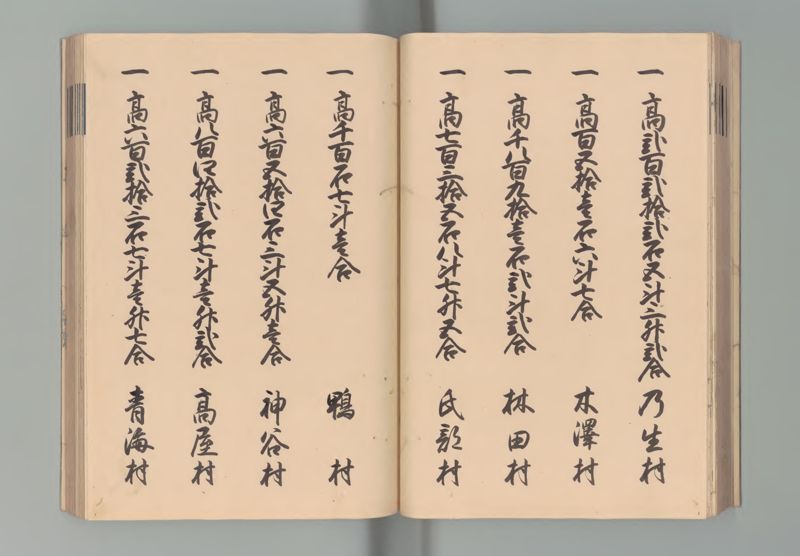 一 高弐百弐拾弐石五斗三升弐合 乃生村
一 高百五拾壱石六斗七合 木澤村
一 高千八百九拾壱石弐斗弐合 林田村
一 高七百三拾五石八斗七升五合 氏部村
一 高千百石七斗壱合 鴨村
一 高六百五拾四石三斗五升壱合 神谷村
一 高八百四拾弐石七斗壱升弐合 高屋村
一 高六百弐拾三石七斗壱升七合 青海村